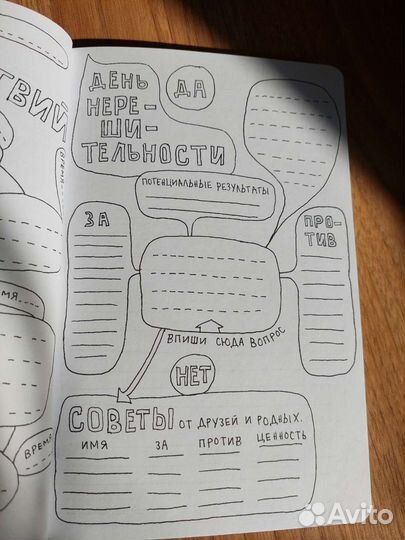 ТВИЙ
ВРЕМЯ
ВРЕМЯ
ДЕНЬ
НЕРЕ-
ШИ-
ТЕЛЬНОСТИ
ДА
ПОТЕНЦИАЛЬНЫЕ РЕЗУЛЬТАТЫ
ЗА
ПРО-
ТИВ
ВПИШИ СЮДА ВОПРОС
НЕТ
СОВЕТЫ ОТ ДРУЗЕЙ И РОДНЫХ.
ИМЯ ЗА ПРОТИВ ЦЕННОСТЬ
Avito